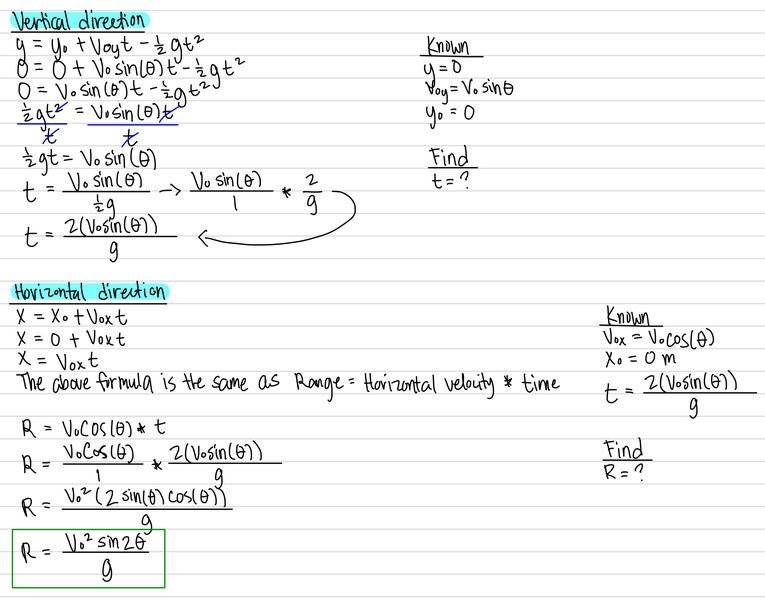 Vertical direction
y = y₀ + V₀yt - ½gt²
0 = 0 + V₀ sin(θ)t - ½gt²
0 = V₀ sin(θ)t - ½gt²
½gt²/t = V₀ sin(θ)t/t
½gt = V₀ sin(θ)
t = V₀ sin(θ)/½g → V₀ sin(θ)/1 * 2/g
t = 2(V₀sin(θ))/g
Known
y = 0
V₀y = V₀ sinθ
y₀ = 0
Find
t = ?
Horizontal direction
X = X₀ + V₀x t
X = 0 + V₀x t
X = V₀x t
The above formula is the same as Range = Horizontal velocity * time
R = V₀cos(θ) * t
R = V₀cos(θ)/1 * 2(V₀sin(θ))/g
R = V₀²(2 sin(θ) cos(θ))/g
R = V₀² sin2θ/g
Known
V₀x = V₀cos(θ)
X₀ = 0 m
t = 2(V₀sin(θ))/g
Find
R = ?